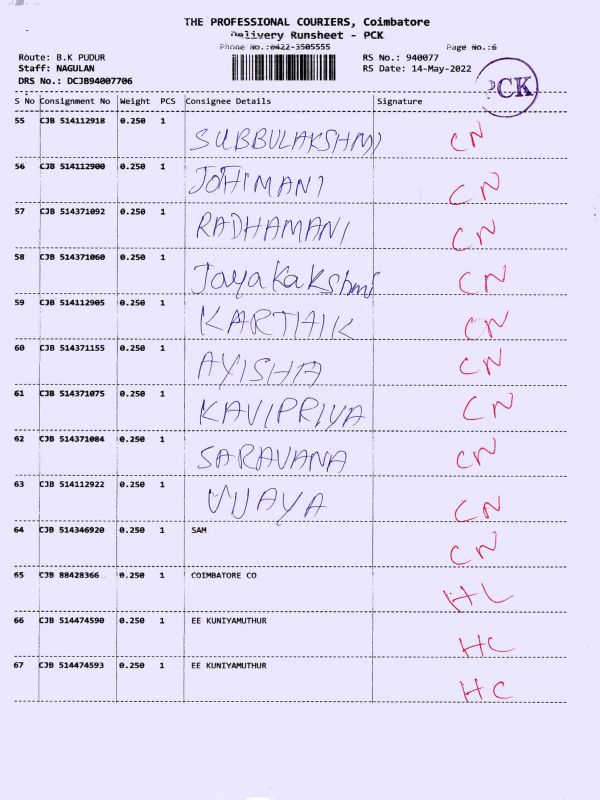 THE PROFESSIONAL COURIERS, Coimbatore
Delivery Runsheet - PCK
Phone No.:0422-3505555 Page No.:6
Route: B.K PUDUR RS No.: 940077
Staff: NAGULAN RS Date: 14-May-2022
DRS No.: DCJB94007706
PCK
S No Consignment No Weight PCS Consignee Details Signature
55 CJB 514112918 0.250 1 SUBBULAKSHMI CN
56 CJB 514112900 0.250 1 JOTHIMANI CN
57 CJB 514371092 0.250 1 RADHAMANI CN
58 CJB 514371060 0.250 1 Jayakakshmi CN
59 CJB 514112905 0.250 1 KARTHIK CN
60 CJB 514371155 0.250 1 AYISHA CN
61 CJB 514371075 0.250 1 KAVIPRIYA CN
62 CJB 514371084 0.250 1 SARAVANA CN
63 CJB 514112922 0.250 1 VIJAYA CN
64 CJB 514346920 0.250 1 SAM CN
65 CJB 88428366 0.250 1 COIMBATORE CO HL
66 CJB 514474590 0.250 1 EE KUNIYAMUTHUR HC
67 CJB 514474593 0.250 1 EE KUNIYAMUTHUR HC